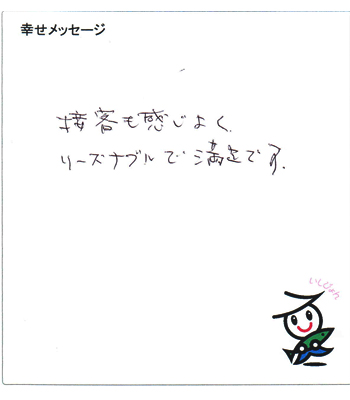 幸せメッセージ
接客も感じよく、
リーズナブルで満足です。